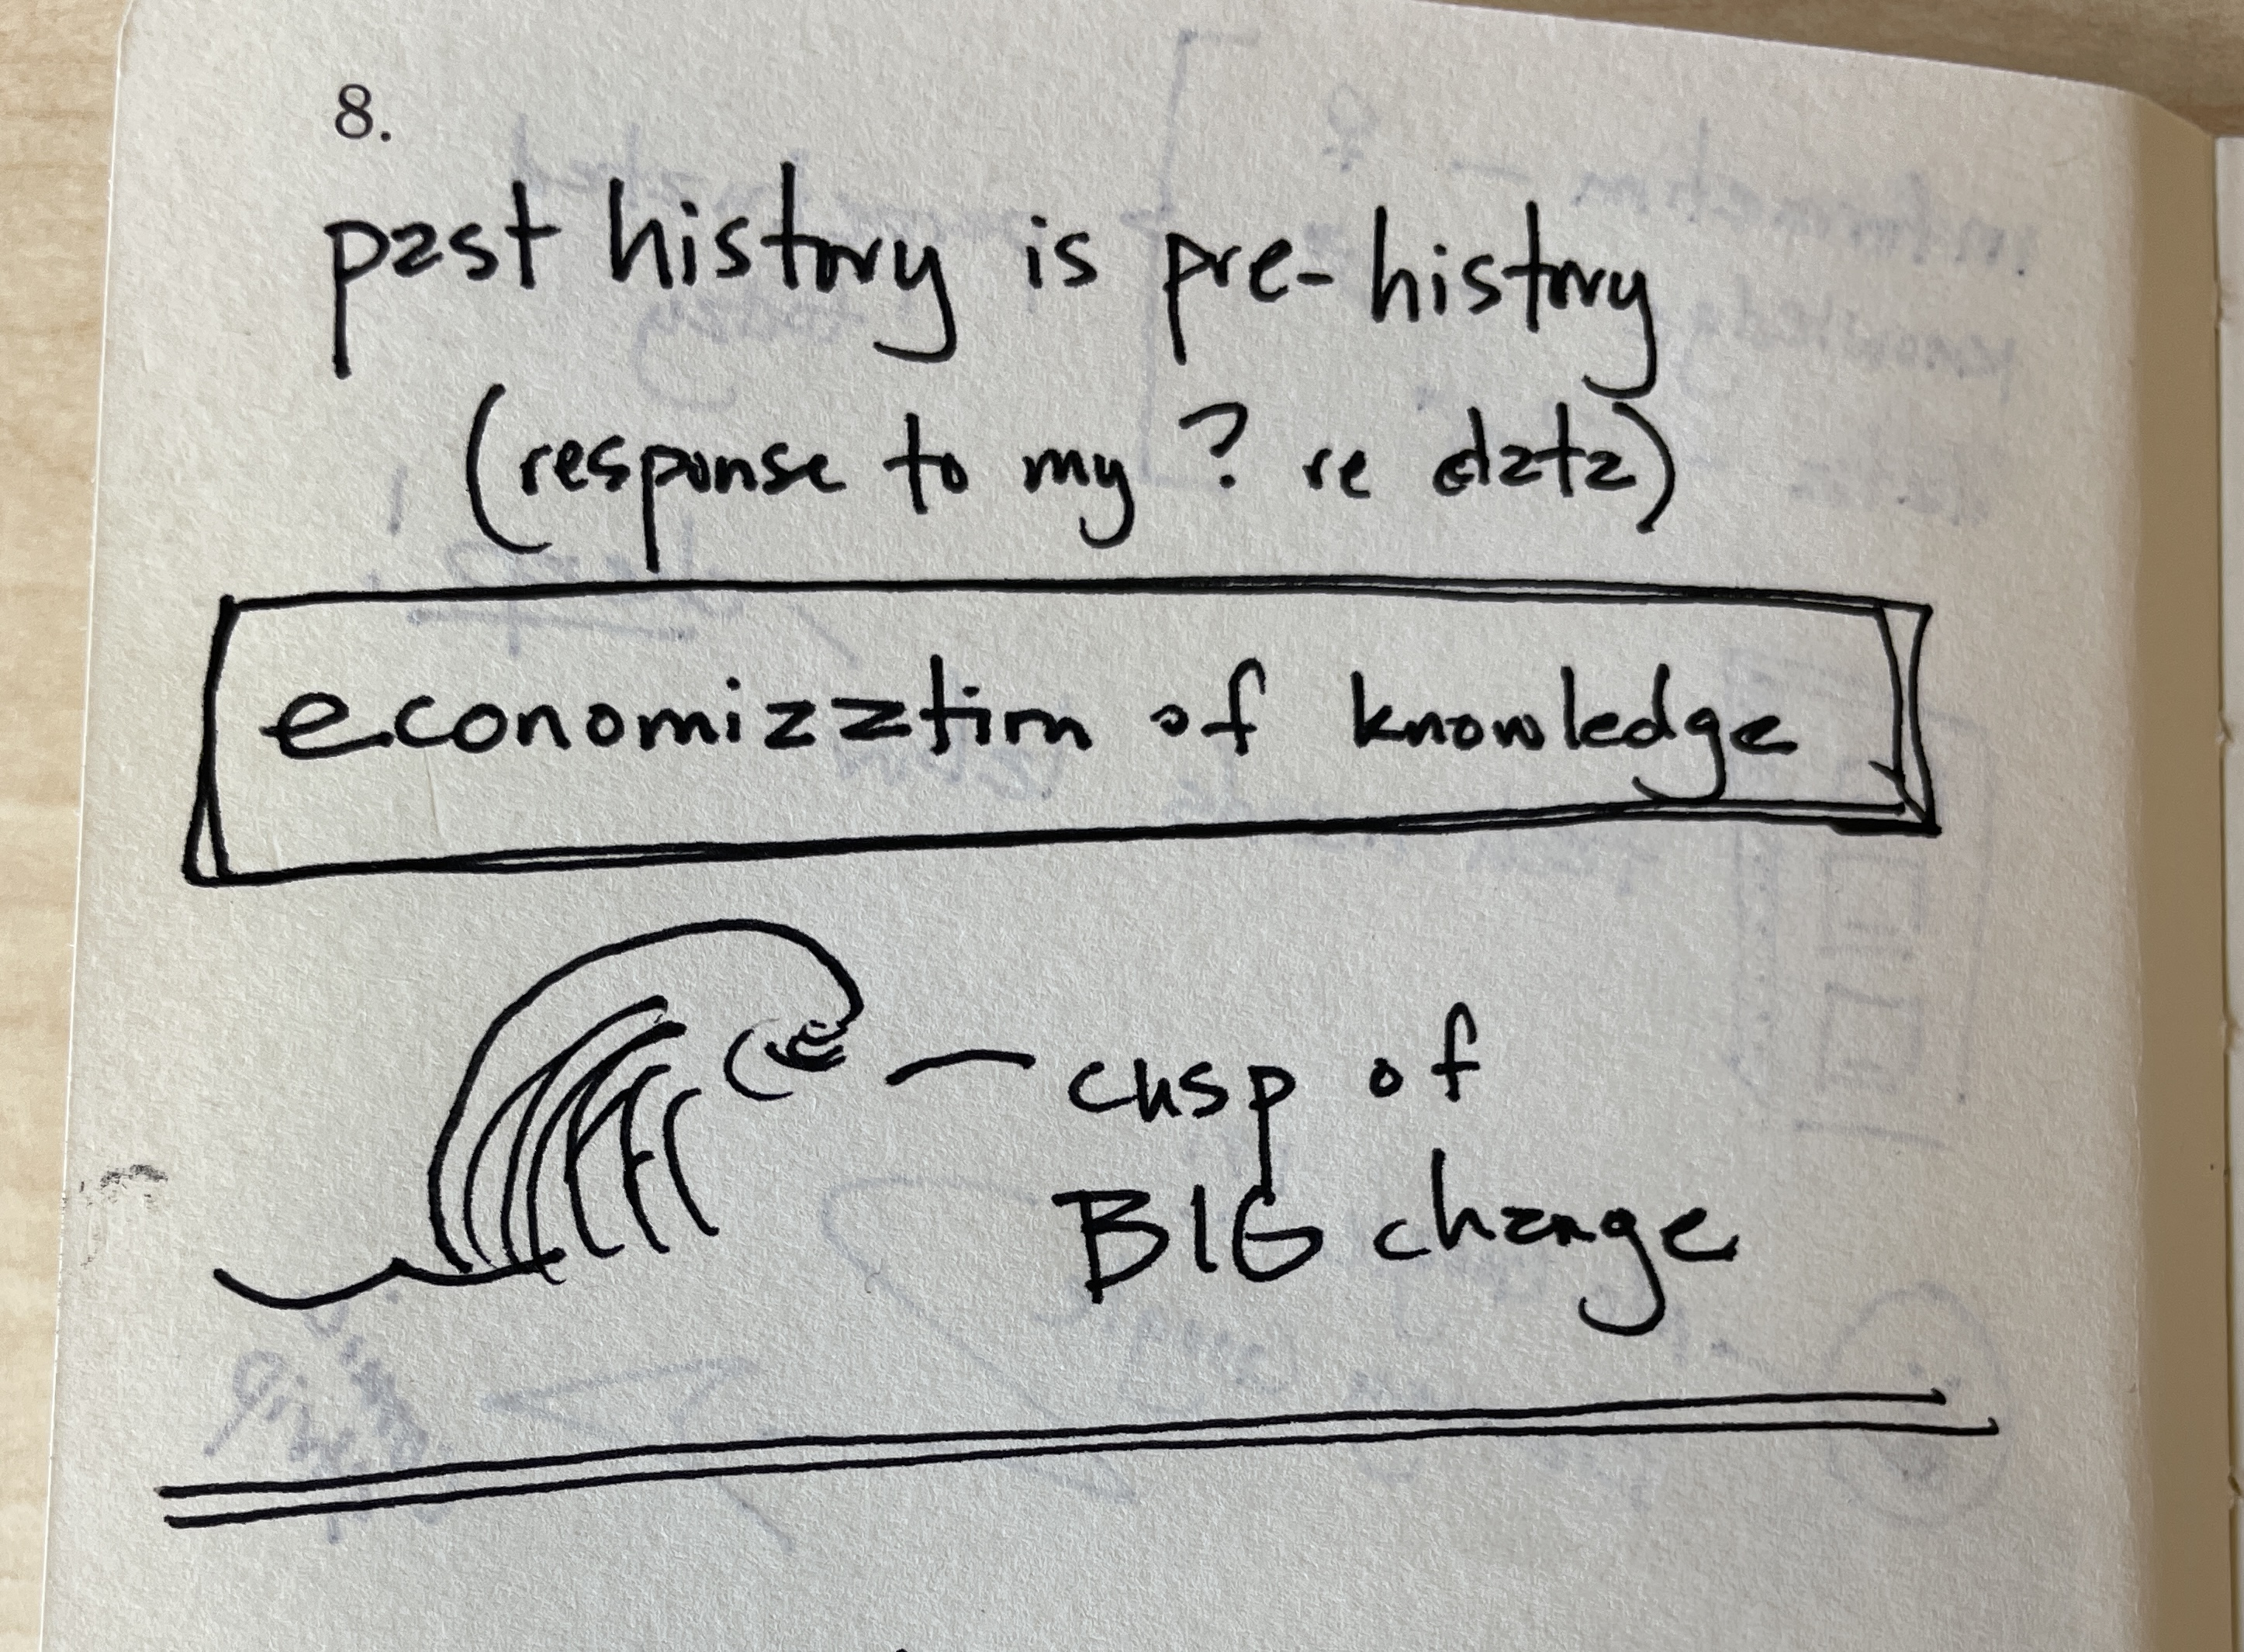 8.
past history is pre-history
(response to my ? re data)
economization of knowledge
— cusp of
BIG change